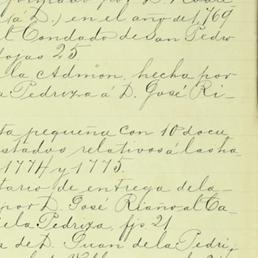 D.) en el año de 1,769
el Condado de san Pedro
ojas 25
la Admon, hecha por
a Pedriza á D. José Ri-
ta pequeña con 10 docu
stados relativos á las ha
1774 y 1775.
tario de entrega de la
por D. José Riaño al Ca
e la Pedriza, fjs 21
a de D. Juan de la Pedri